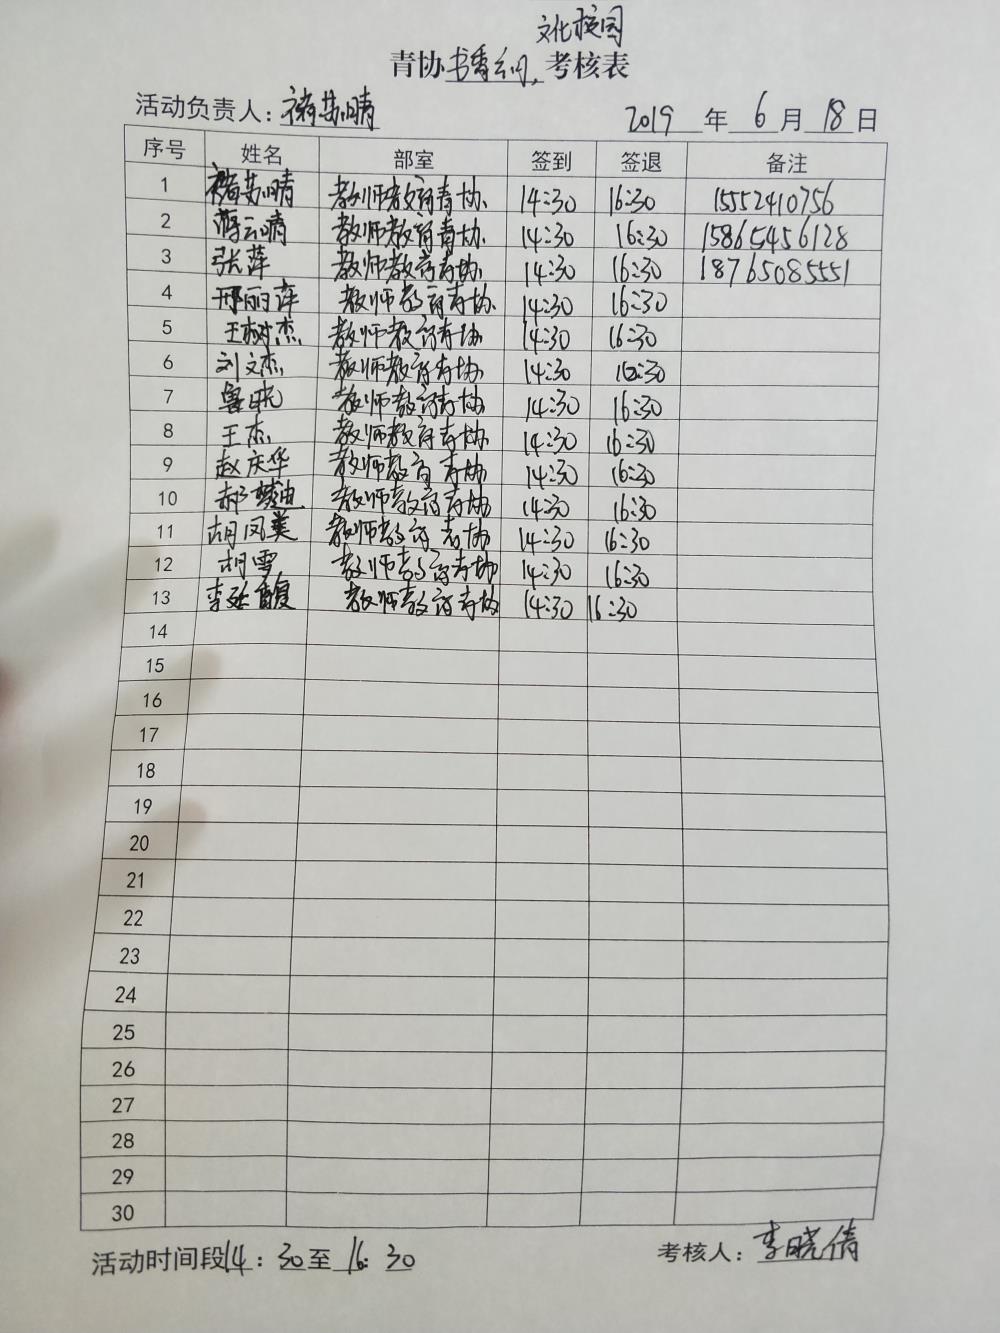 文化校园
青协书香润,考核表
活动负责人:褚苏晴 2019年6月18日
序号 姓名 部室 签到 签退 备注
1 褚苏晴 教师教育青协 14:30 16:30 15552410756
2 蒋云晴 教师教育青协 14:30 16:30 15865456128
3 张萍 教师教育青协 14:30 16:30 18765085551
4 邢丽萍 教师教育青协 14:30 16:30
5 王树杰 教师教育青协 14:30 16:30
6 刘文杰 教师教育青协 14:30 16:30
7 鲁晓 教师教育青协 14:30 16:30
8 王杰 教师教育青协 14:30 16:30
9 赵庆华 教师教育青协 14:30 16:30
10 郝 教师教育青协 14:30 16:30
11 胡凤美 教师教育青协 14:30 16:30
12 胡雪 教师教育青协 14:30 16:30
13 李 教师教育青协 14:30 16:30
14
15
16
17
18
19
20
21
22
23
24
25
26
27
28
29
30
活动时间段14:30至16:30 考核人:李晓倩